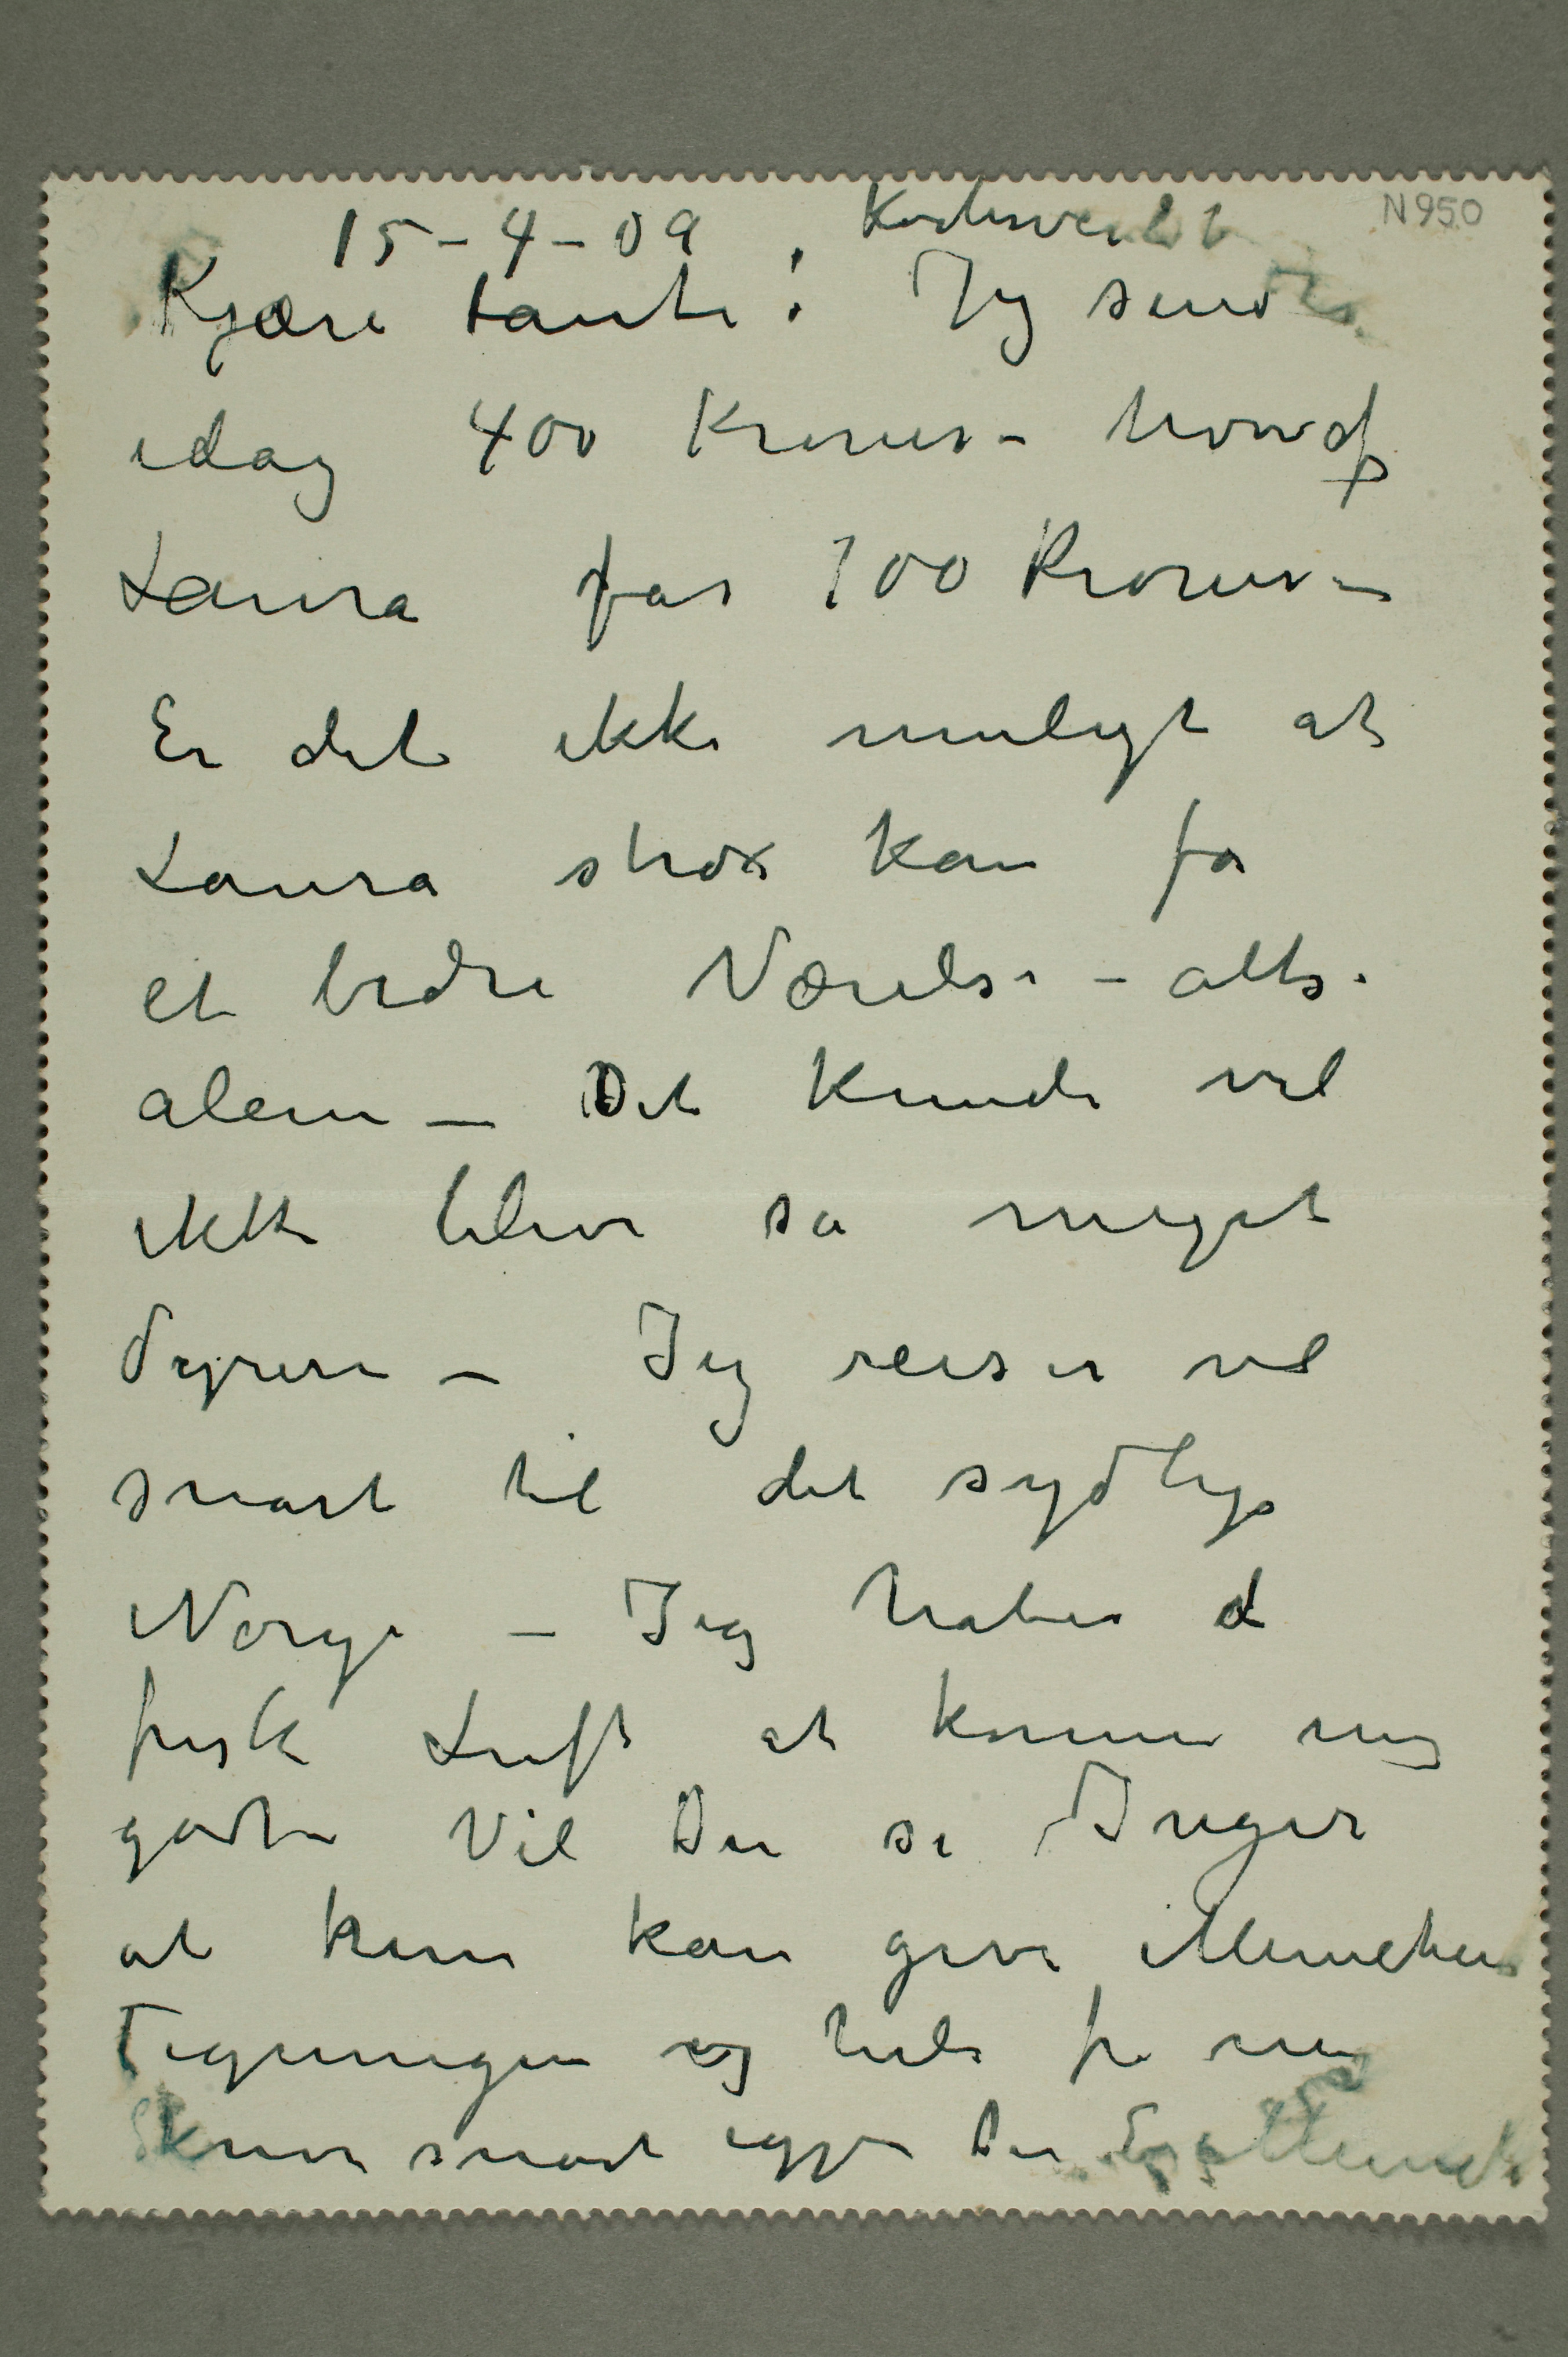 15-4-09 Kochsvei 21 N950
Kjære tante! Jeg sender
idag 400 Kroner – hvoraf
Laura får 100 Kroner –
Er det ikke muligt at
Laura strax kan få
et bedre Værelse – alts.
alene – Det kunde vel
ikke blive så meget
dyrere – Jeg reiser vel
snart til det sydlige
Norge – Jeg håber d
frisk Luft at komme mig
godt Vil Du si Inger
at hun kan give Munch
Tegningen og hils fra mig
Skriv snart igjen Din E Munch